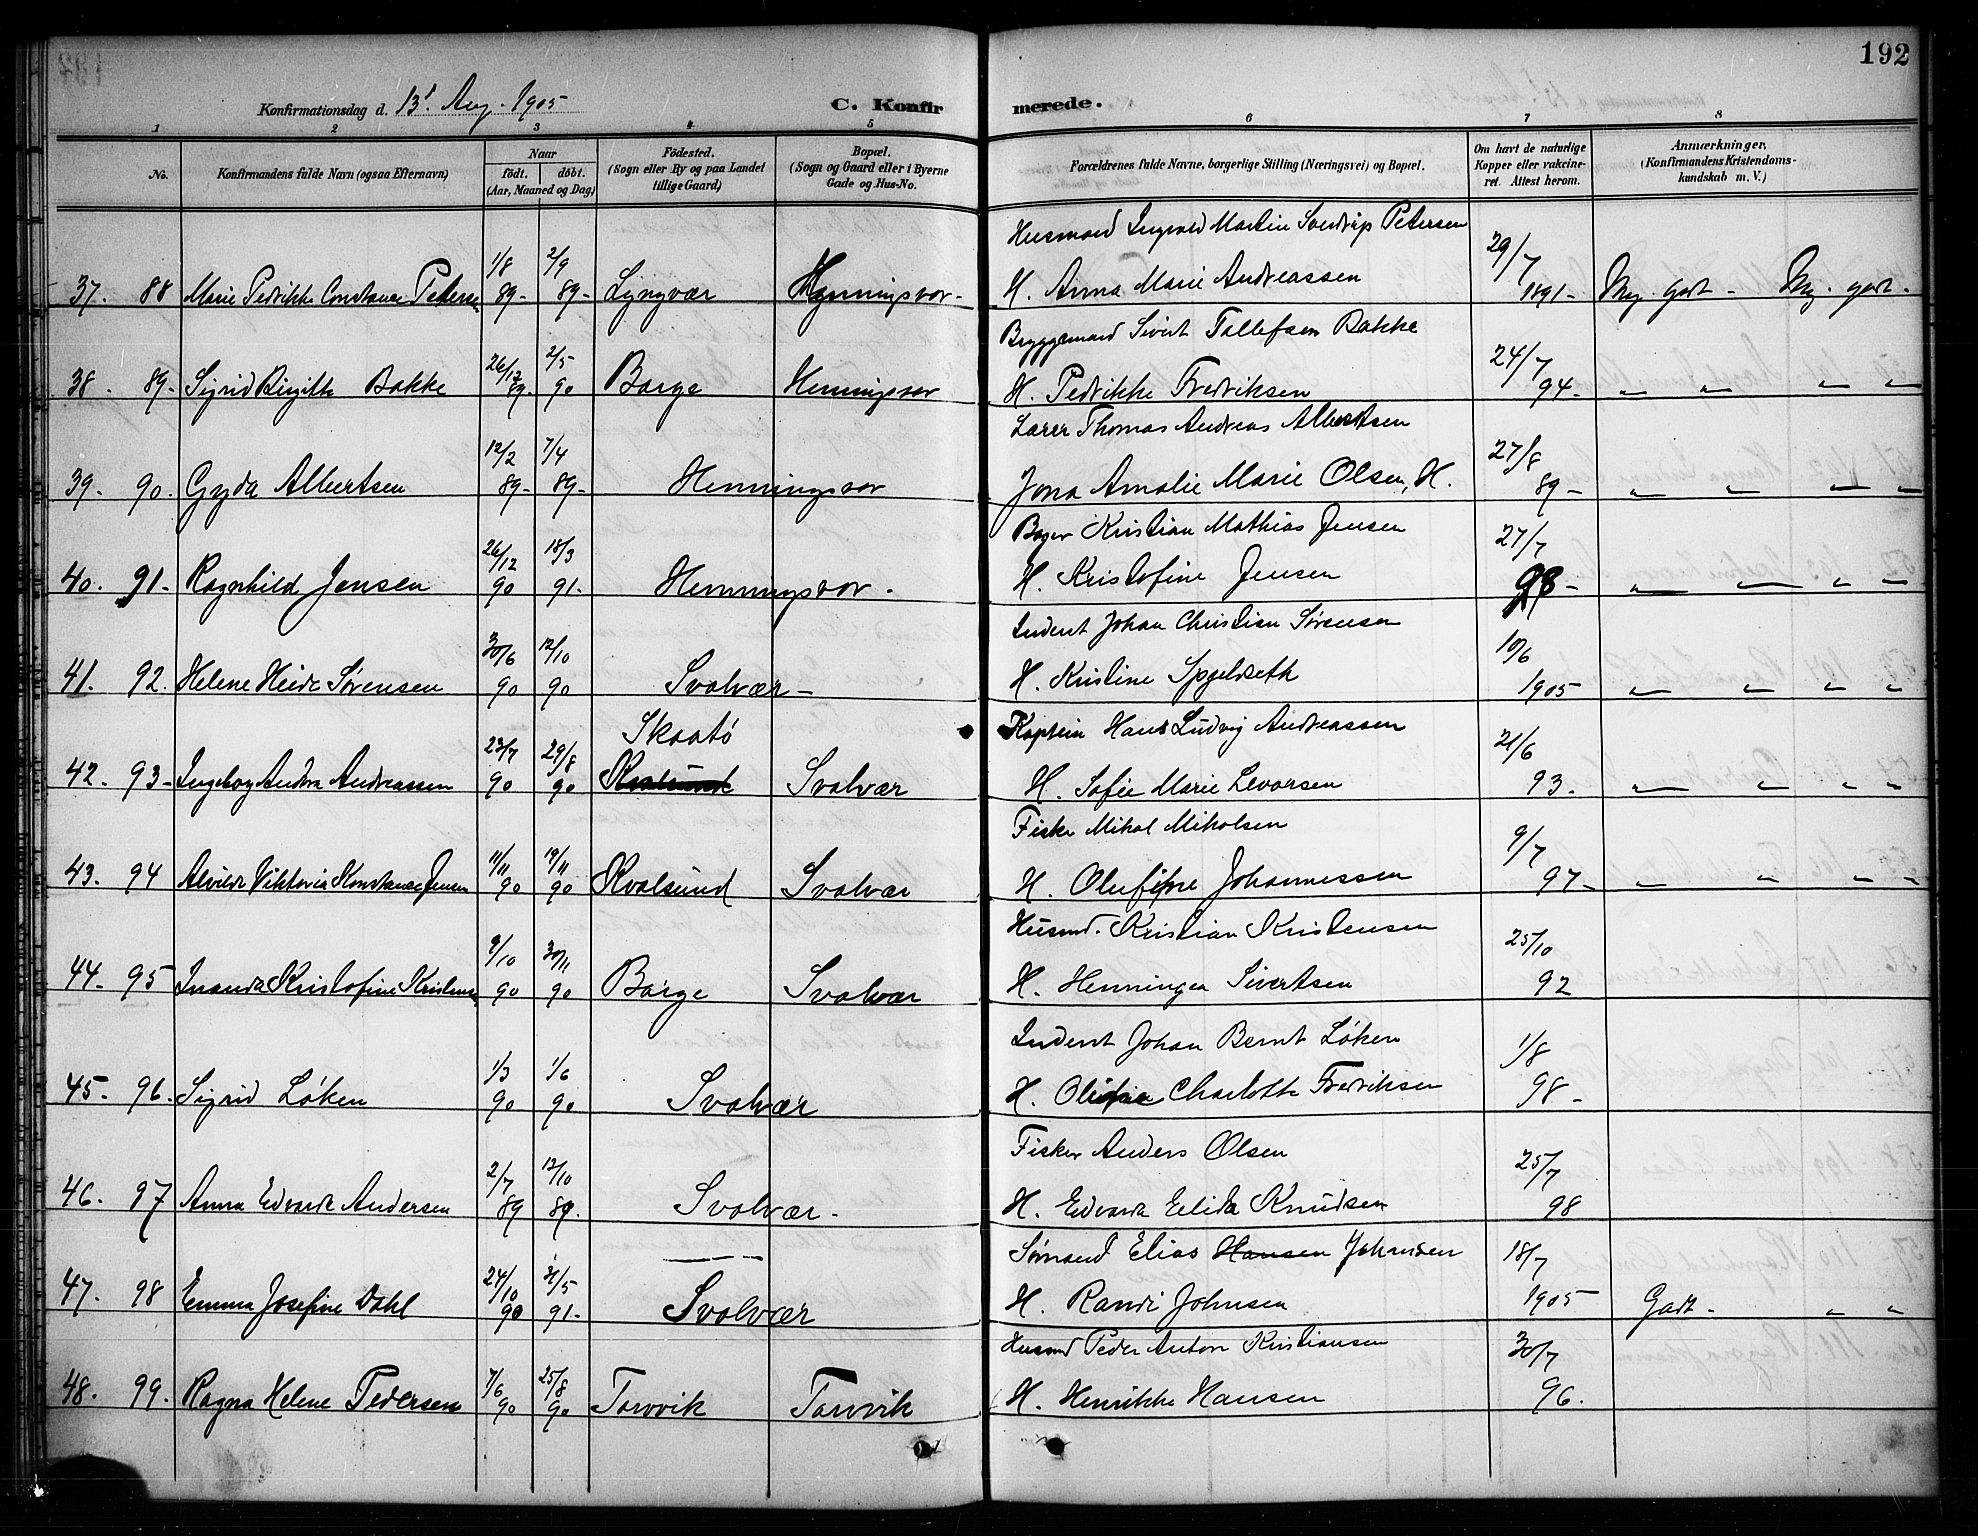 192
Konfirmationsdag d. 13' Aug. 1905
C. Konfir merede.
1 2 3 4 5 6 7 8
No. Konfirmandens fulde Navn (ogsaa Efternavn) Naar födt. döbt. (Aar, Maaned og Dag) Födested. (Sogn eller By og paa Landet tillige Gaard) Bopæl. (Sogn og Gaard eller i Byerne Gade og Hus-No. Forældrenes fulde Navne, borgerlige Stilling (Næringsvei) og Bopæl. Om havt de naturlige Kopper eller vakcineret. Attest herom. Anmærkninger, (Konfirmandens Kristendomskundskab m. V.)
Husmand Ingvald Martin Sverdrup Petersen
37. 88 Marie Pedrikke Constance Petersen 1/8 89- 2/9 89- Lyngvær Henningsvær- H. Anna Marie Andreassen 29/7 1891- Mg. godt - Mg. godt.
Bryggemand Sivert Tollefsen Bakke
38. 89- Sigrid Birgitte Bakke 26/12 89. 2/5 90 Borge Henningsvær H. Pedrikke Fredriksen 24/7 94- " " " "
Lærer Thomas Andreas Albertsen
39. 90. Gyda Albertsen 12/2 89- 7/4 89- Henningsvær Jona Amalie Marie Olsen, H. 27/8 89- " " " "
Bager Kristian Mathias Jensen
40. 91- Ragnhild Jensen 26/12 90 18/3 91. Henningsvær. H. Kristofine Jensen 27/7 98- " " " "
Indent Johan Christian Sørensen
41. 92. Helene Heide Sørensen 30/6 90 12/10 90 Svolvær- H. Kristine Spjeldseth 10/6 1905 " " " "
Skaatø
Kaptein Hans Ludvig Andreassen
42. 93- Ingeborg Andrea Andreassen 23/7 90 29/8 90 Kvalsund Svolvær H. Sofie Marie Levorsen 21/6 93. " " " "
Fisker Mikal Mikalsen
43. 94 Alvilde Viktoria Konstanse Jensen 11/11 90 19/11 90 Kvalsund Svolvær H. Olufine Johannessen 9/7 97- " " " "
Husmd. Kristian Kristensen
44- 95 Kristofine Kristensen 9/10 90 30/11 90 Borge Svolvær H. Henningea Sivertsen 25/10 92
Indent Johan Bernt Løken
45- 96. Sigrid Løken 1/3 90 1/6 90 Svolvær H. Charlotte Fredriksen 1/8 98-
Fisker Anders Olsen
46. 97 Anna Edvarde Andersen 2/7 89 13/10 89. Svolvær. H. Edvarda Elida Knudsen 25/7 98
Sømand Elias Hansen Johansen
47. 98 Emma Josefine Dahl 24/10 90 31/5 91- Svolvær H. Randi Johnsen 18/7 1905 Godt- " "
Husmd Peder Anton Kristiansen
48. 99. Ragna Helene Pedersen 7/6 90 25/8 90 Torvvik Torvvik H. Henrikke Hansen 30/7 96.